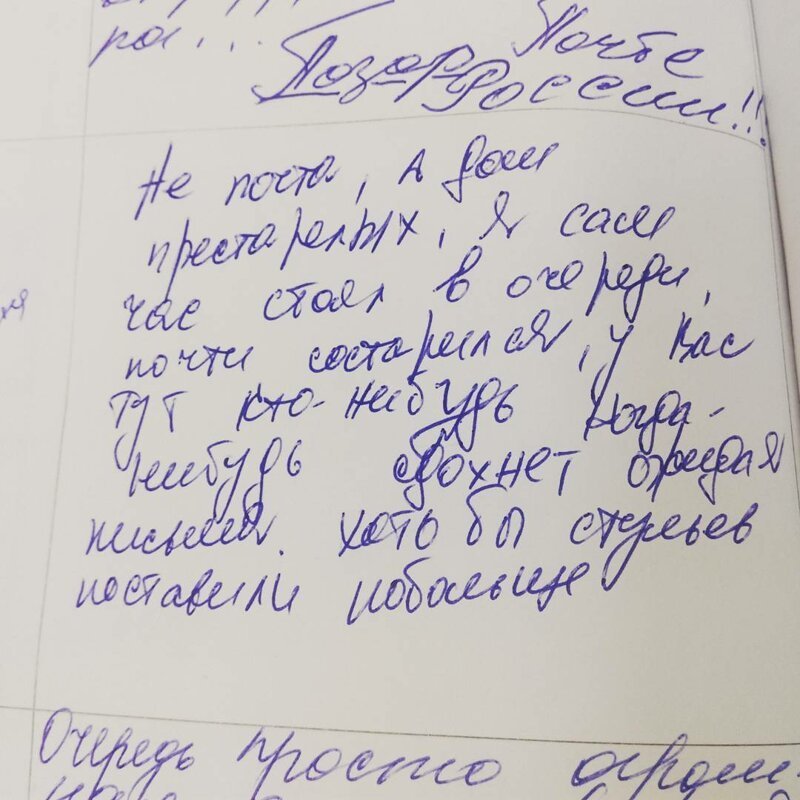 ра...
Позор Почте
России!!!
Не почта, а дом
престарелых, я сам
час стоял в очереди,
почти состарился, у вас
тут кто-нибудь когда-
нибудь сдохнет ожидая
письма. хоть бы стульев
поставили побольше
Очередь просто огром-